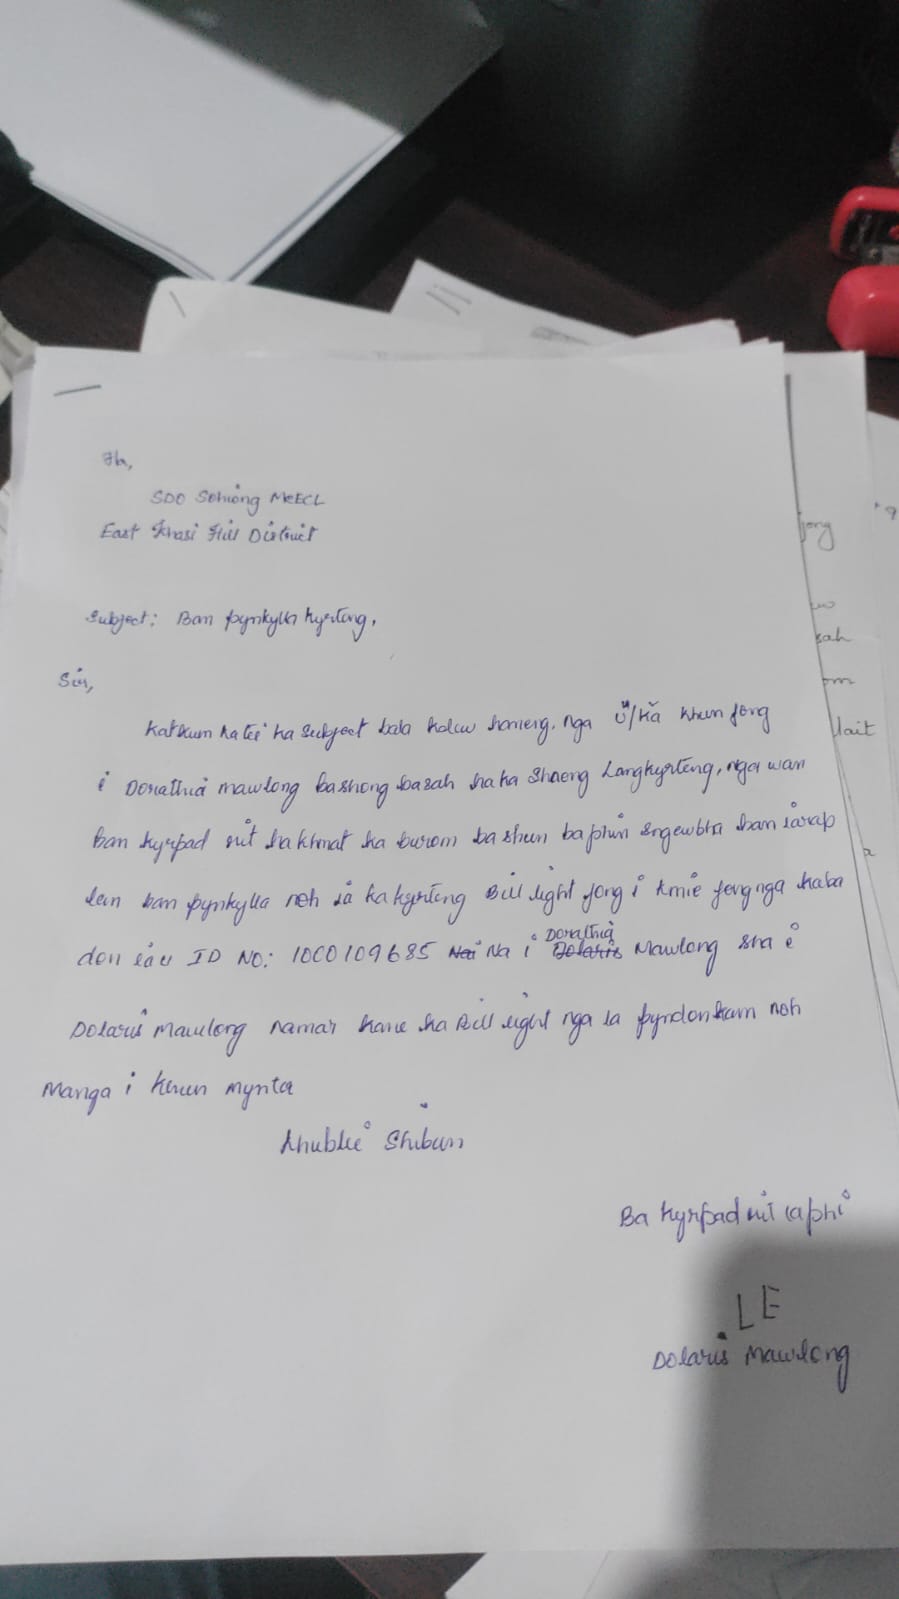 Ha,
SDO Sohiong MeECL
East Khasi Hill District
Subject: Ban pynkylla kyrteng,
Sir,
Katkum katei ka subject bala kdew haneng, nga U/Ka khun jong
i Donathia Mawlong bashong basah ha ka shnong Langkyrteng, nga wan
ban kyrpad nit ha khmat ka burom ba shun ba phin sngewbha ban iarap
lem ban pynkylla noh ia ka kyrteng Bill light jong i kmie jong nga kaba
don iau ID No: 1000109685 Nai Na i Dolaris Donathia Mawlong sha i
Dolaris Mawlong namar kane ka Bill light nga la pyndonkam noh
Manga i khun mynta
Khublei Shibun
Ba kyrpad nit iaphi
LE
Dolaris Mawlong
jong
sah
om
lait
a